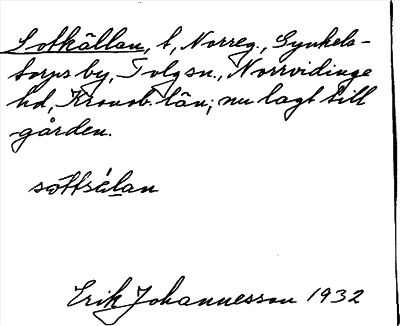 Sotkällan, t, Norreg., Gynkels-
torps by, Tolg sn., Norrvidinge
hd, Kronob. län; nu lagt till
gården.
sòttsélan
Erik Johannesson 1932